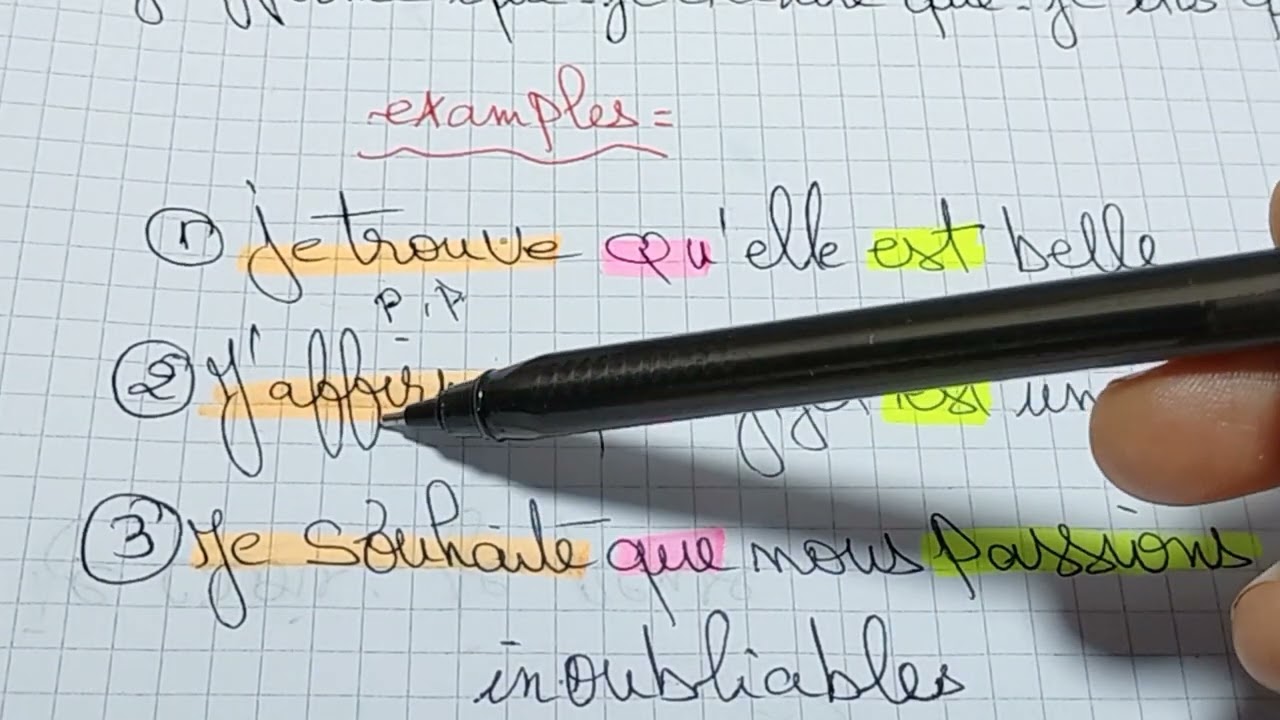 que je que je
examples =
① je trouve qu'elle est belle
P.P
② J'affir est un
③ Je souhaite que nous passions
inoubliables